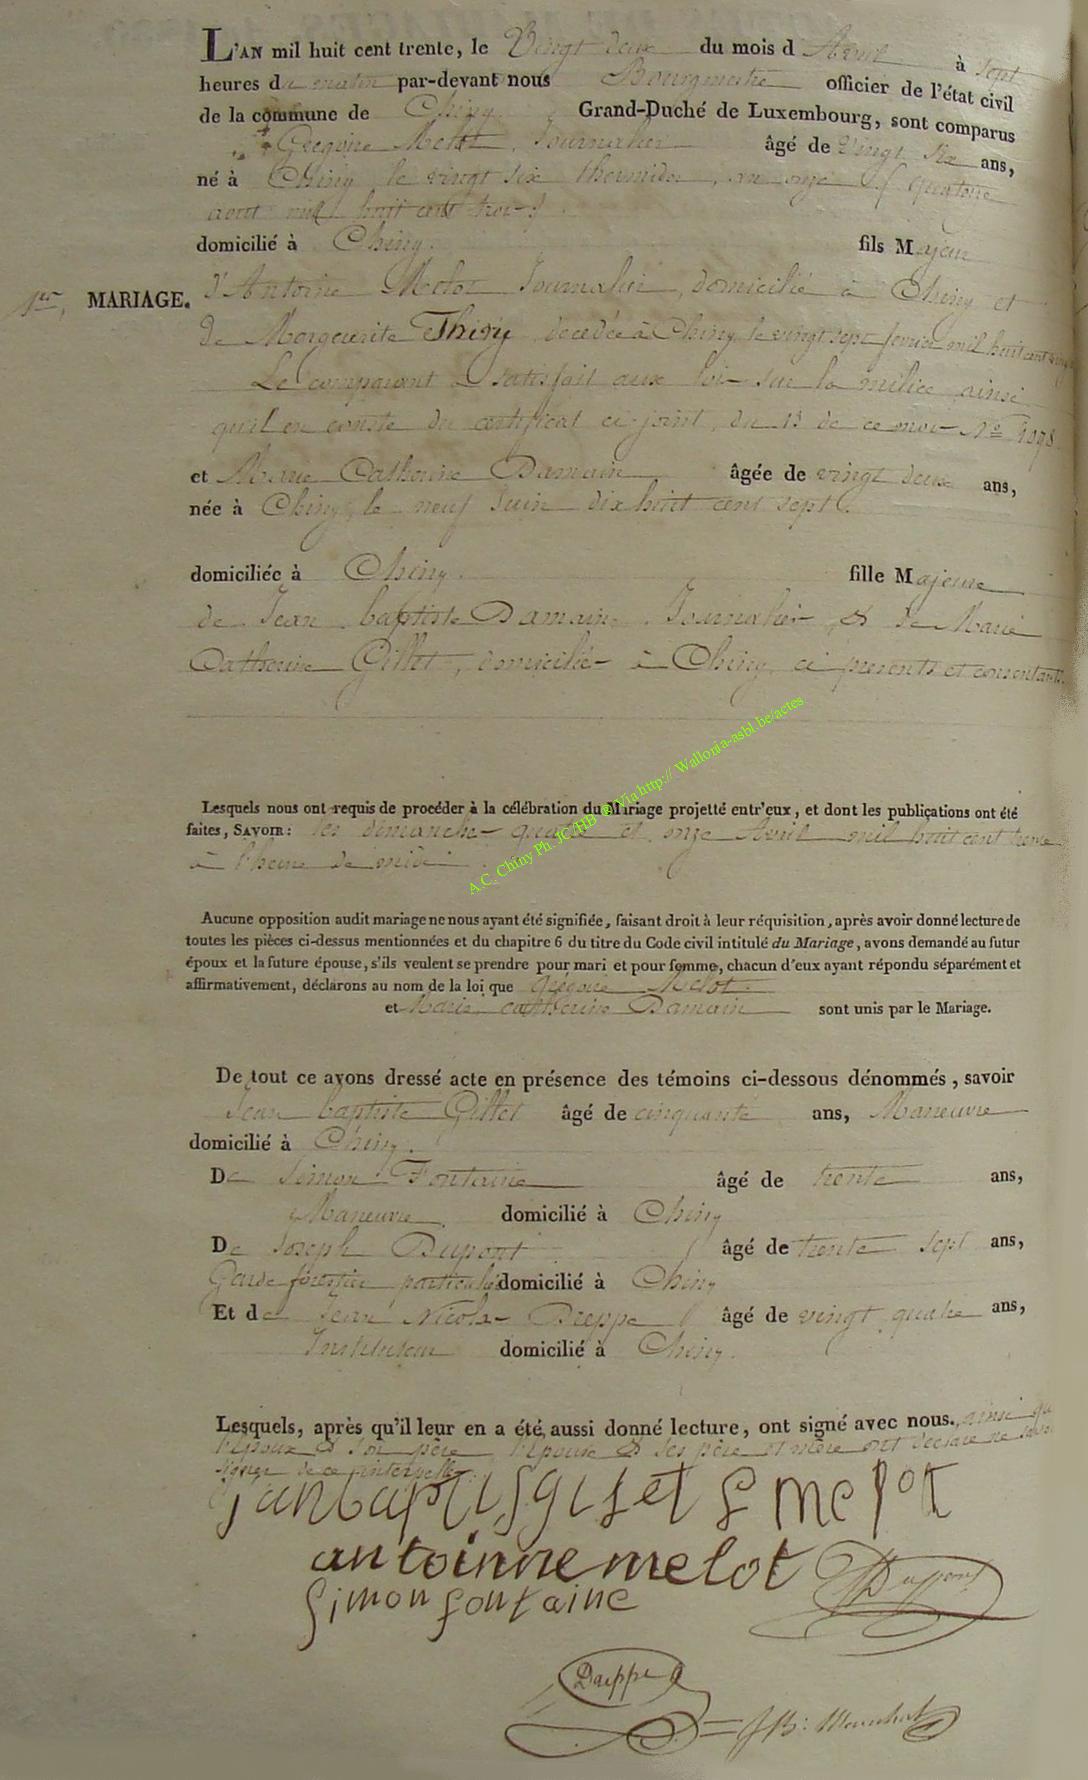 L'AN mil huit cent trente, le Vingt deux du mois d'Avril à sept
heures du matin par-devant nous Bourgmestre officier de l'état civil
de la commune de Chiny Grand-Duché de Luxembourg, sont comparus
Gregoire Melot, Journalier âgé de vingt six ans,
né à Chiny le vingt six thermidor, an onze (quatorze
aout mil huit cent trois)
domicilié à Chiny. fils Majeur
1er MARIAGE. d'Antoine Melot Journalier, domicilié à Chiny et
de Margueritte Thiry decedée à Chiny le vingt sept fevrier mil huit cent
Le comparant a satisfait aux lois sur la milice ainsi
qu'il en conste du certificat ci-joint, du 13 de ce mois No 1098
et Marie Catherine Damain âgée de vingt deux ans,
née à Chiny, le neuf Juin dix huit cent sept.
domiciliée à Chiny. fille Majeure
de Jean baptiste Damain, Journalier & de Marie
Catherine Gillet, domiciliés à Chiny, ci presents et consentants
Lesquels nous ont requis de procéder à la célébration du Mariage projetté entr'eux, et dont les publications ont été
faites, SAVOIR: les dimanches quatre et onze Avril mil huit cent trente
à l'heure de midi.
Aucune opposition audit mariage ne nous ayant été signifiée, faisant droit à leur réquisition, après avoir donné lecture de
toutes les pièces ci-dessus mentionnées et du chapitre 6 du titre du Code civil intitulé du Mariage, avons demandé au futur
époux et la future épouse, s'ils veulent se prendre pour mari et pour femme, chacun d'eux ayant répondu séparément et
affirmativement, déclarons au nom de la loi que Grégoire Melot
et Marie catherine Damain sont unis par le Mariage.
De tout ce avons dressé acte en présence des témoins ci-dessous dénommés, savoir
Jean baptiste Gillet âgé de cinquante ans, Maneuvre
domicilié à Chiny.
De Simon Fontaine âgé de trente ans,
Maneuvre domicilié à Chiny
De Joseph Dupont âgé de trente sept ans,
Garde forestier particulier domicilié à Chiny
Et de Jean Nicolas Dreppe âgé de vingt quatre ans,
Instituteur domicilié à Chiny.
Lesquels, après qu'il leur en a été aussi donné lecture, ont signé avec nous. ainsi que
l'epoux & son père, l'epouse & ses père et mère ont declaré ne savoir
signer de ce interpellés
janbaptis gilet g melot
antoinne melot Dupont
Simon fontaine
Dreppe
JB: Manchat
A.C. Chiny Ph. JC/HB ® Via http:// Wallonia-asbl.be/actes